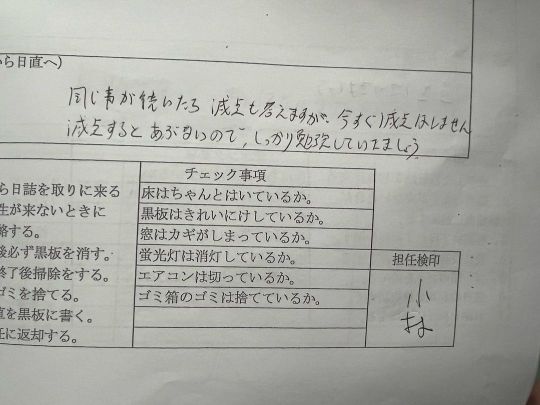 ら日直へ)
同じ事が続いたら 減点も答えますが、今すぐ減点はしません
減点すると あぶないので、しっかり勉強していきましょう
ら日誌を取りに来る
生が来ないときに
絡する。
後必ず黒板を消す。
終了後掃除をする。
ゴミを捨てる。
直を黒板に書く。
任に返却する。
チェック事項
床はちゃんとはいているか。
黒板はきれいにけしているか。
窓はカギがしまっているか。
蛍光灯は消灯しているか。
エアコンは切っているか。
ゴミ箱のゴミは捨てているか。
担任検印
小